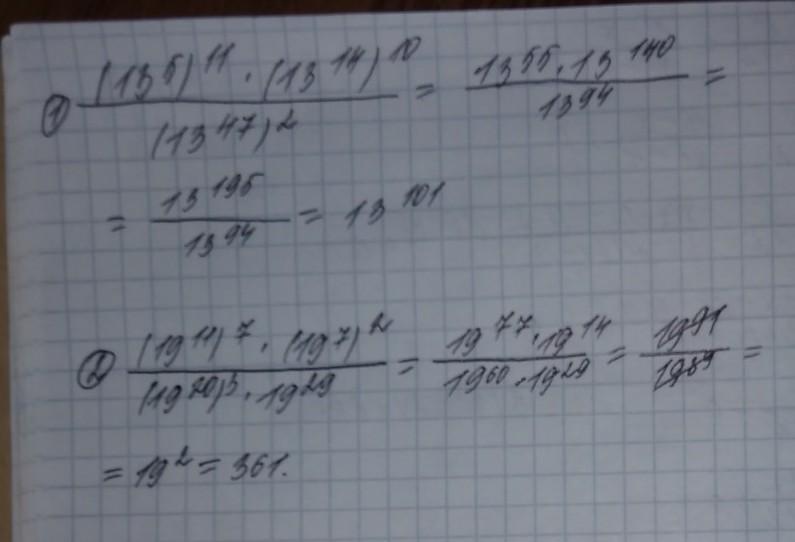 ① (13^5)^11 · (13^14)^10 / (13^47)^2 = 13^55 · 13^140 / 13^94 =
= 13^195 / 13^94 = 13^101
② (19^11)^7 · (19^7)^2 / (19^20)^3 · 19^29 = 19^77 · 19^14 / 19^60 · 19^29 = 19^91 / 19^89 =
= 19^2 = 361.